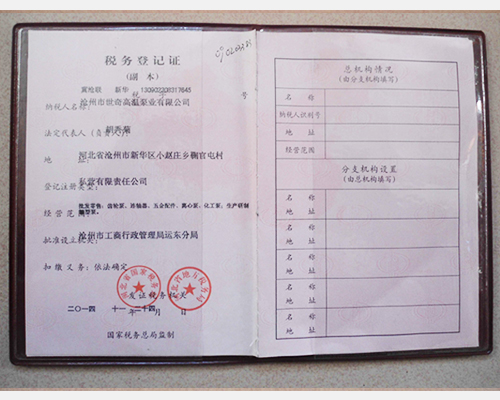 税务登记证
(副 本)
冀沧联 新华 130902308317645 号
税
纳税人名称: 沧州市世奇高温泵业有限公司
法定代表人(负责人)
地 址: 河北省沧州市新华区小赵庄乡鞠官屯村
登记注册类型: 私营有限责任公司
经营范围: 批发零售:齿轮泵、
五金配件、离心泵、化工泵、生产研制
批准设立机关: 沧州市工商行政管理局运东分局
扣缴义务:依法确定
发证税务机关
二〇一四 年 十一 月 二十四 日
国家税务总局监制
总机构情况
(由分支机构填写)
名 称
纳税人识别号
地 址
经营范围
分支机构设置
(由总机构填写)
名 称
地 址
名 称
地 址
名 称
地 址
名 称
地 址
名 称
地 址